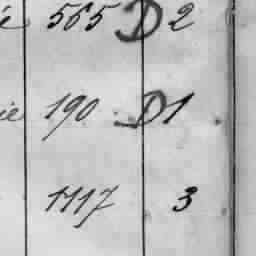 é 565 D 2
ie 190 D 1
1117 3